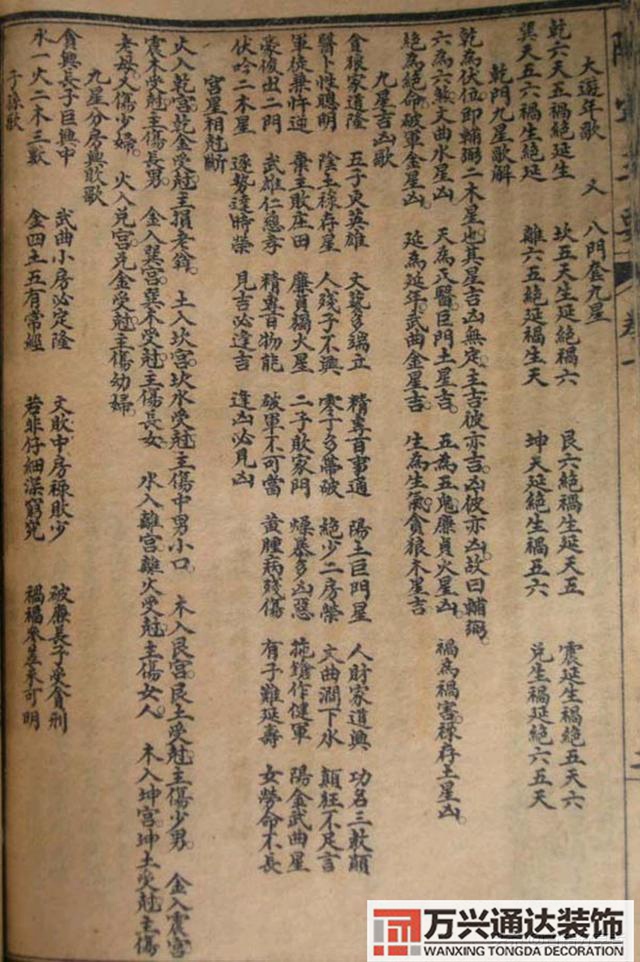 大遊年歌 又 八門套九星
乾六天五禍絕延生 坎五天生延絕禍六 艮六絕禍生延天五 震延生禍絕五天六
巽天五六禍生絕延 離六五絕延禍生天 坤天延絕生禍五六 兌生禍延絕六五天
乾門九星歌解
乾為伏位即輔弼二木星也其星吉凶無定主吉彼亦吉凶彼亦凶故曰輔弼
六為六煞文曲水星凶 天為天醫巨門土星吉 五為五鬼廉貞火星凶 禍為禍害祿存土星凶
絕為絕命破軍金星凶 延為延年武曲金星吉 生為生氣貪狼木星吉
九星吉凶歌
貪狼家道隆 五子更英雄 文藝多端立 精專百事通 陽土巨門星 人財家道興 功名三教顯
醫卜性聰明 陰土祿存星 人殘子不興 零子多帶破 絕少二房榮 文曲澗下水 顛狂不足言
軍徒兼忤逆 棄主敗庄田 廉貞獨火星 二子敗家門 燥暴多凶惡 拖鎗作健軍 陽金武曲星
豪俊出二門 武雄仁慈孝 精專百物能 破軍不可當 黃腫病殘傷 有子難延壽 女勞命不長
伏吟二木星 逐勢逹時榮 見吉必逢吉 逢凶必見凶
宮星相尅斷
火入乾宮乾金受尅主損老翁 土入坎宮坎水受尅主傷中男小口 木入艮宮艮土受尅主傷少男 金入震宮
震木受尅主傷長男 金入巽宮巽木受尅主傷長女 水入離宮離火受尅主傷女人 木入坤宮坤土受尅主傷
老母又傷少婦 火入兌宮兌金受尅主傷幼婦
九星分房興敗歌
貪興長子巨興中 武曲小房必定隆 文敗中房祿敗少 破廉長子受貧刑
水一火二木三數 金四土五有常經 若非仔細深窮究 禍福參差未可明
子孫歌
万兴通达装饰
WANXING TONGDA DECORATION